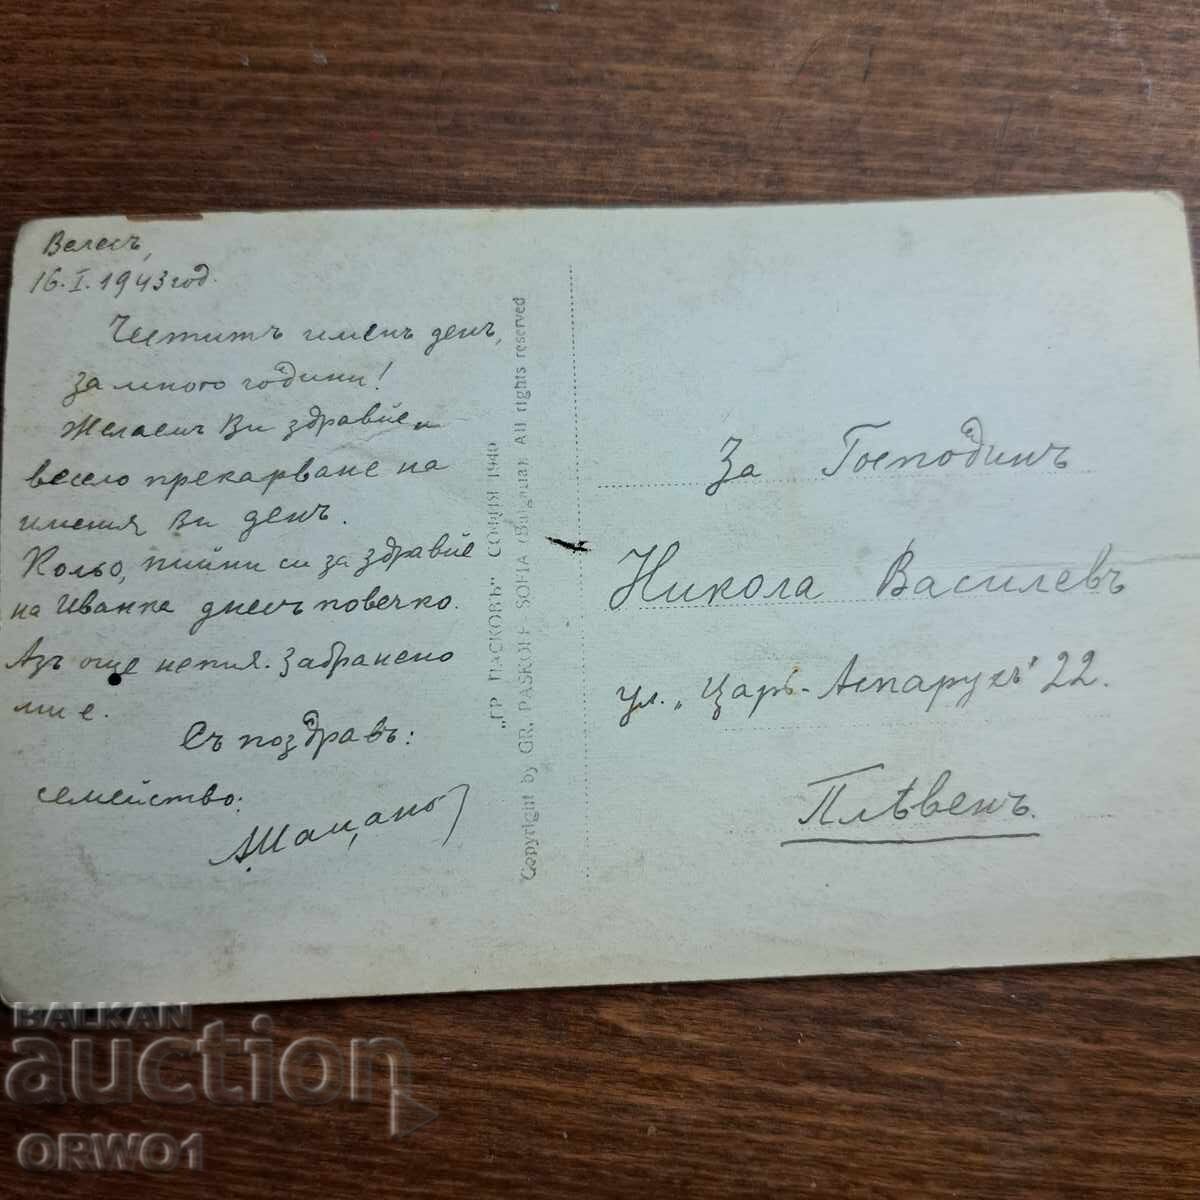 Велесъ,
16.I.1943 год.
Честитъ именъ денъ,
за много години!
Желаемъ Ви здравйе и
весело прекарване на
имения Ви денъ.
Кольо, пийни си за здравйе
на Иванка днесъ повечко.
Азъ още непия. Забранено
ми е.
Съ поздравъ:
семейство:
"ГР. ПАСКОВЪ" СОФИЯ 1940
Copyright by GR. PASKOFF-SOFIA (Bulgaria). All rights reserved
За Господинъ
Никола Василевъ
ул. „Царъ-Аспарухъ" 22.
Плѣвенъ.
BALKAN
auction
ORWO1